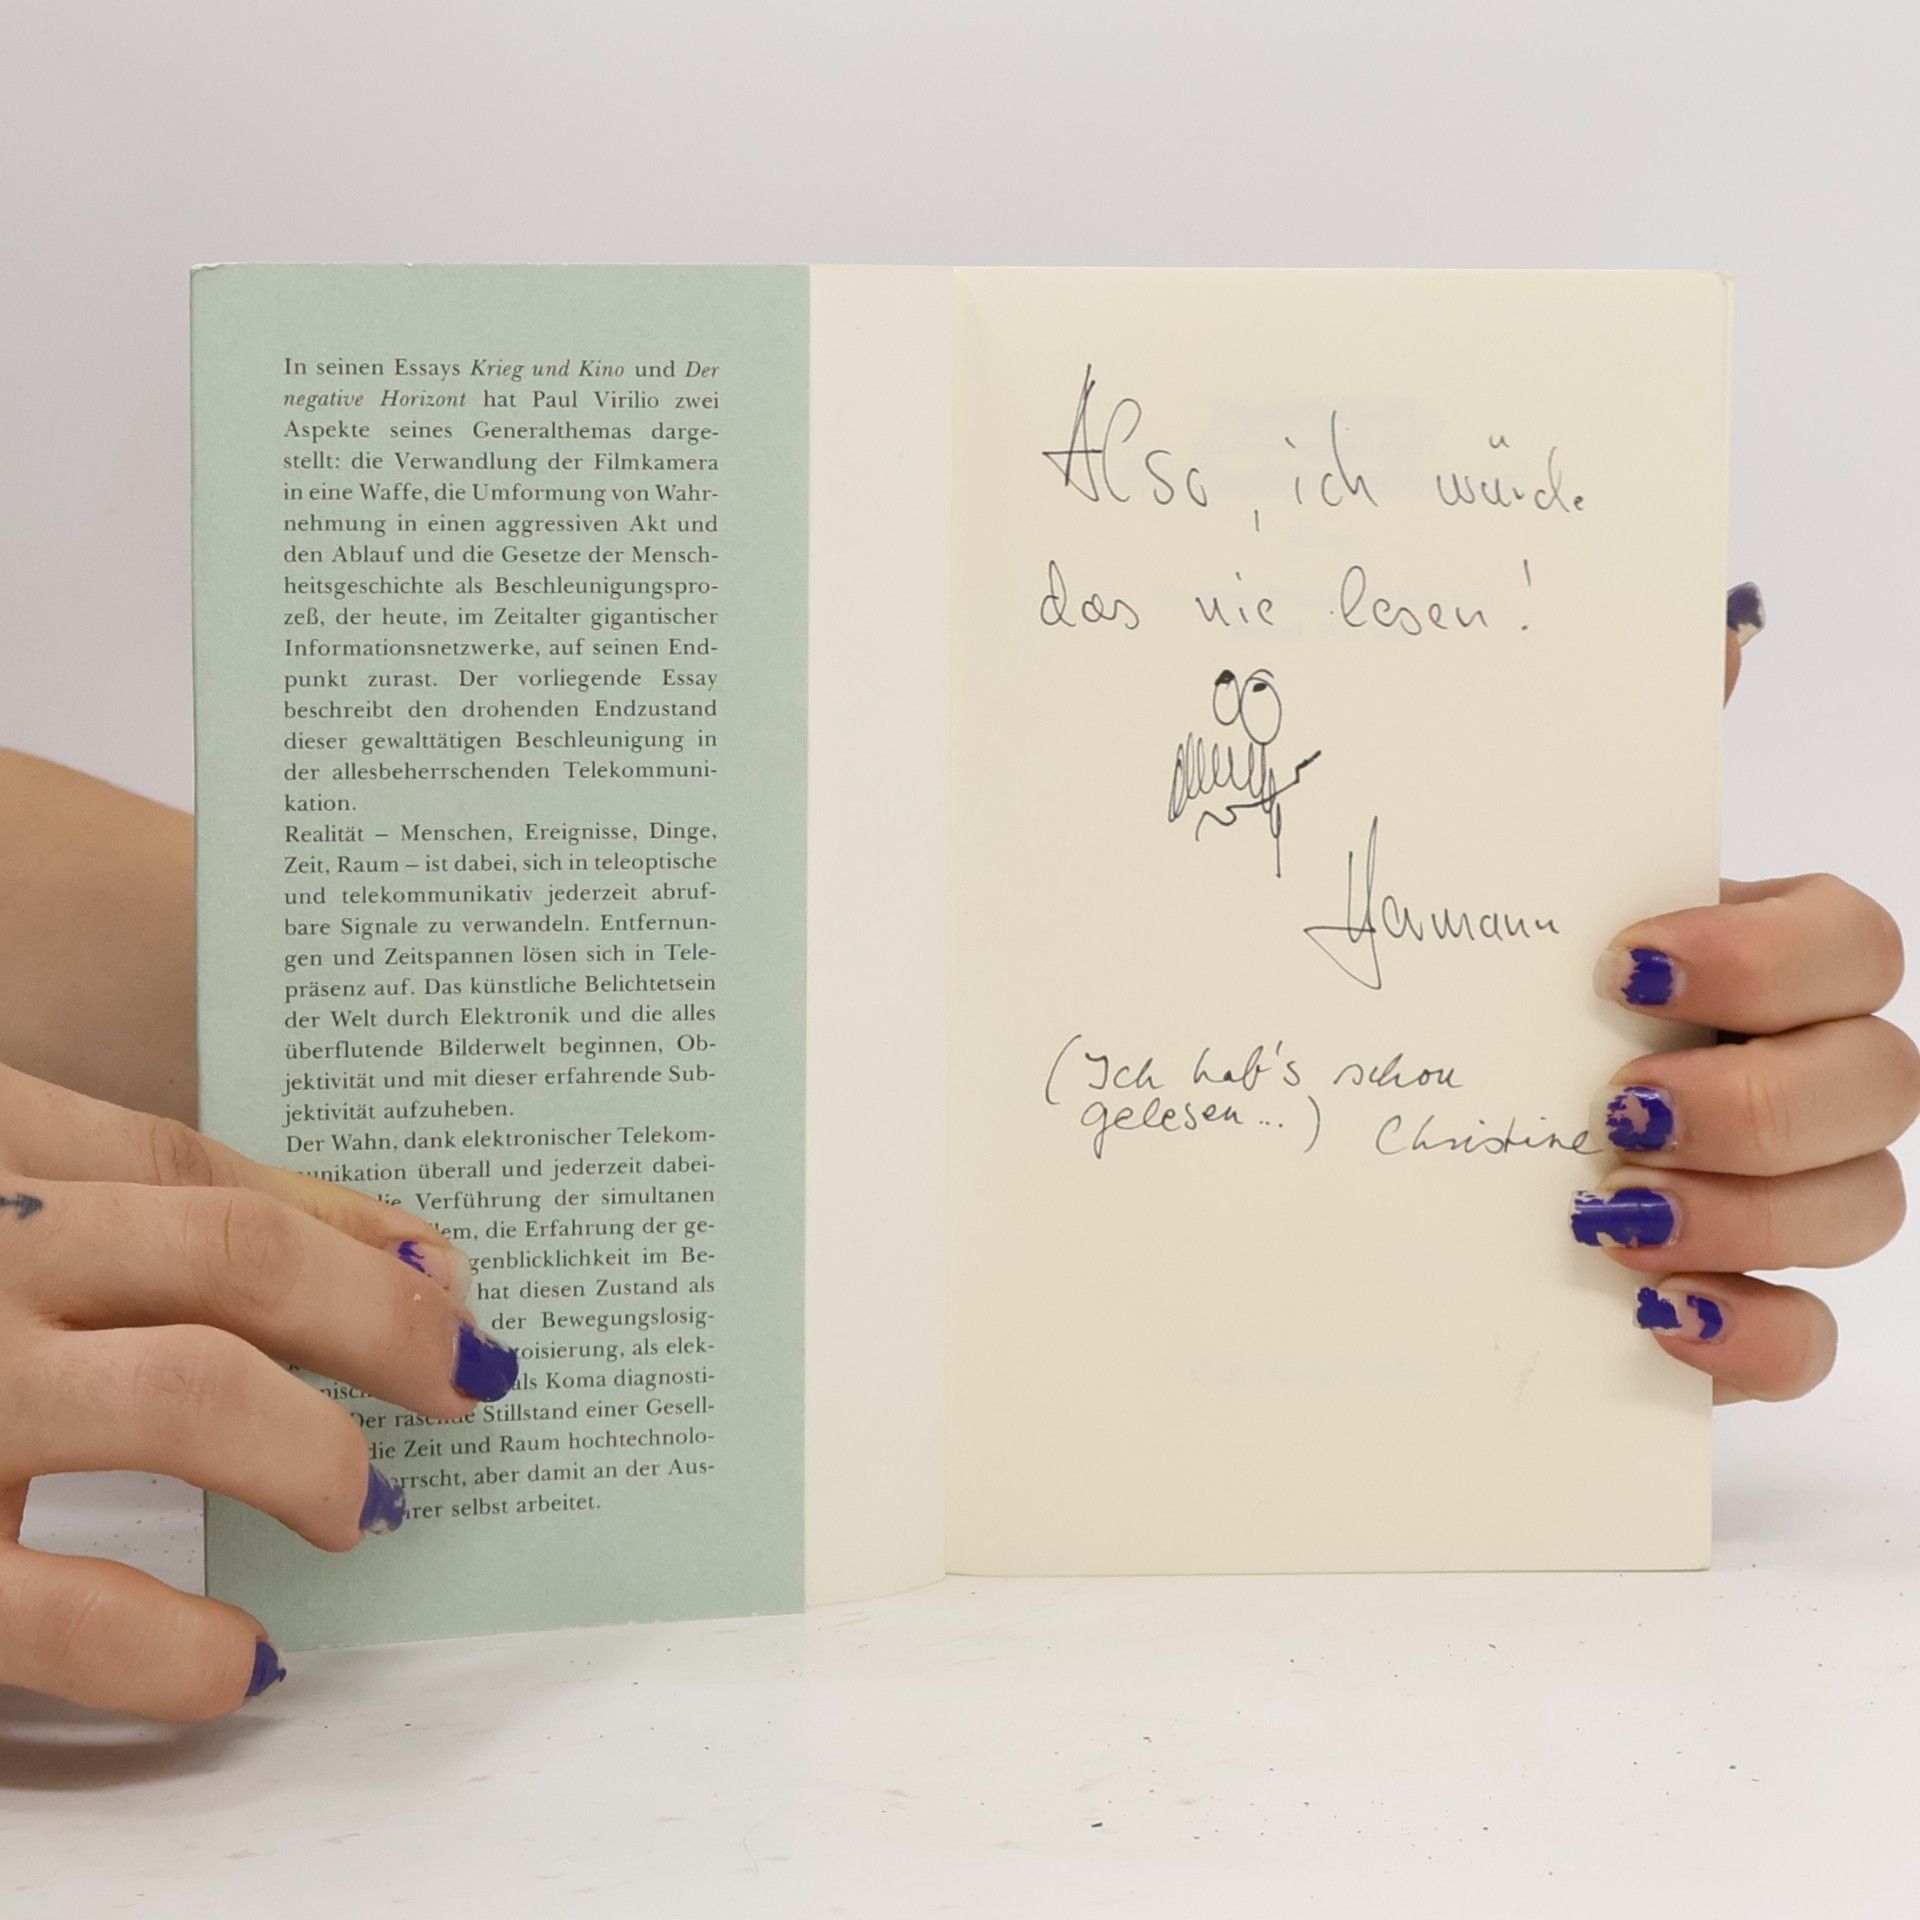 In seinen Essays Krieg und Kino und Der
negative Horizont hat Paul Virilio zwei
Aspekte seines Generalthemas darge-
stellt: die Verwandlung der Filmkamera
in eine Waffe, die Umformung von Wahr-
nehmung in einen aggressiven Akt und
den Ablauf und die Gesetze der Mensch-
heitsgeschichte als Beschleunigungspro-
zeß, der heute, im Zeitalter gigantischer
Informationsnetzwerke, auf seinen End-
punkt zurast. Der vorliegende Essay
beschreibt den drohenden Endzustand
dieser gewalttätigen Beschleunigung in
der allesbeherrschenden Telekommuni-
kation.
Realität – Menschen, Ereignisse, Dinge,
Zeit, Raum – ist dabei, sich in teleoptische
und telekommunikativ jederzeit abruf-
bare Signale zu verwandeln. Entfernun-
gen und Zeitspannen lösen sich in Tele-
präsenz auf. Das künstliche Belichtetsein
der Welt durch Elektronik und die alles
überflutende Bilderwelt beginnen, Ob-
jektivität und mit dieser erfahrende Sub-
jektivität aufzuheben.
Der Wahn, dank elektronischer Telekom-
munikation überall und jederzeit dabei-
die Verführung der simultanen
die Erfahrung der ge-
genblicklichkeit im Be-
hat diesen Zustand als
der Bewegungslosig-
toisierung, als elek-
als Koma diagnosti-
Der rasende Stillstand einer Gesell-
die Zeit und Raum hochtechnolo-
errscht, aber damit an der Aus-
ihrer selbst arbeitet.
Also, ich würde
das nie lesen!
Hermann
(Ich hab's schon
gelesen...) Christine